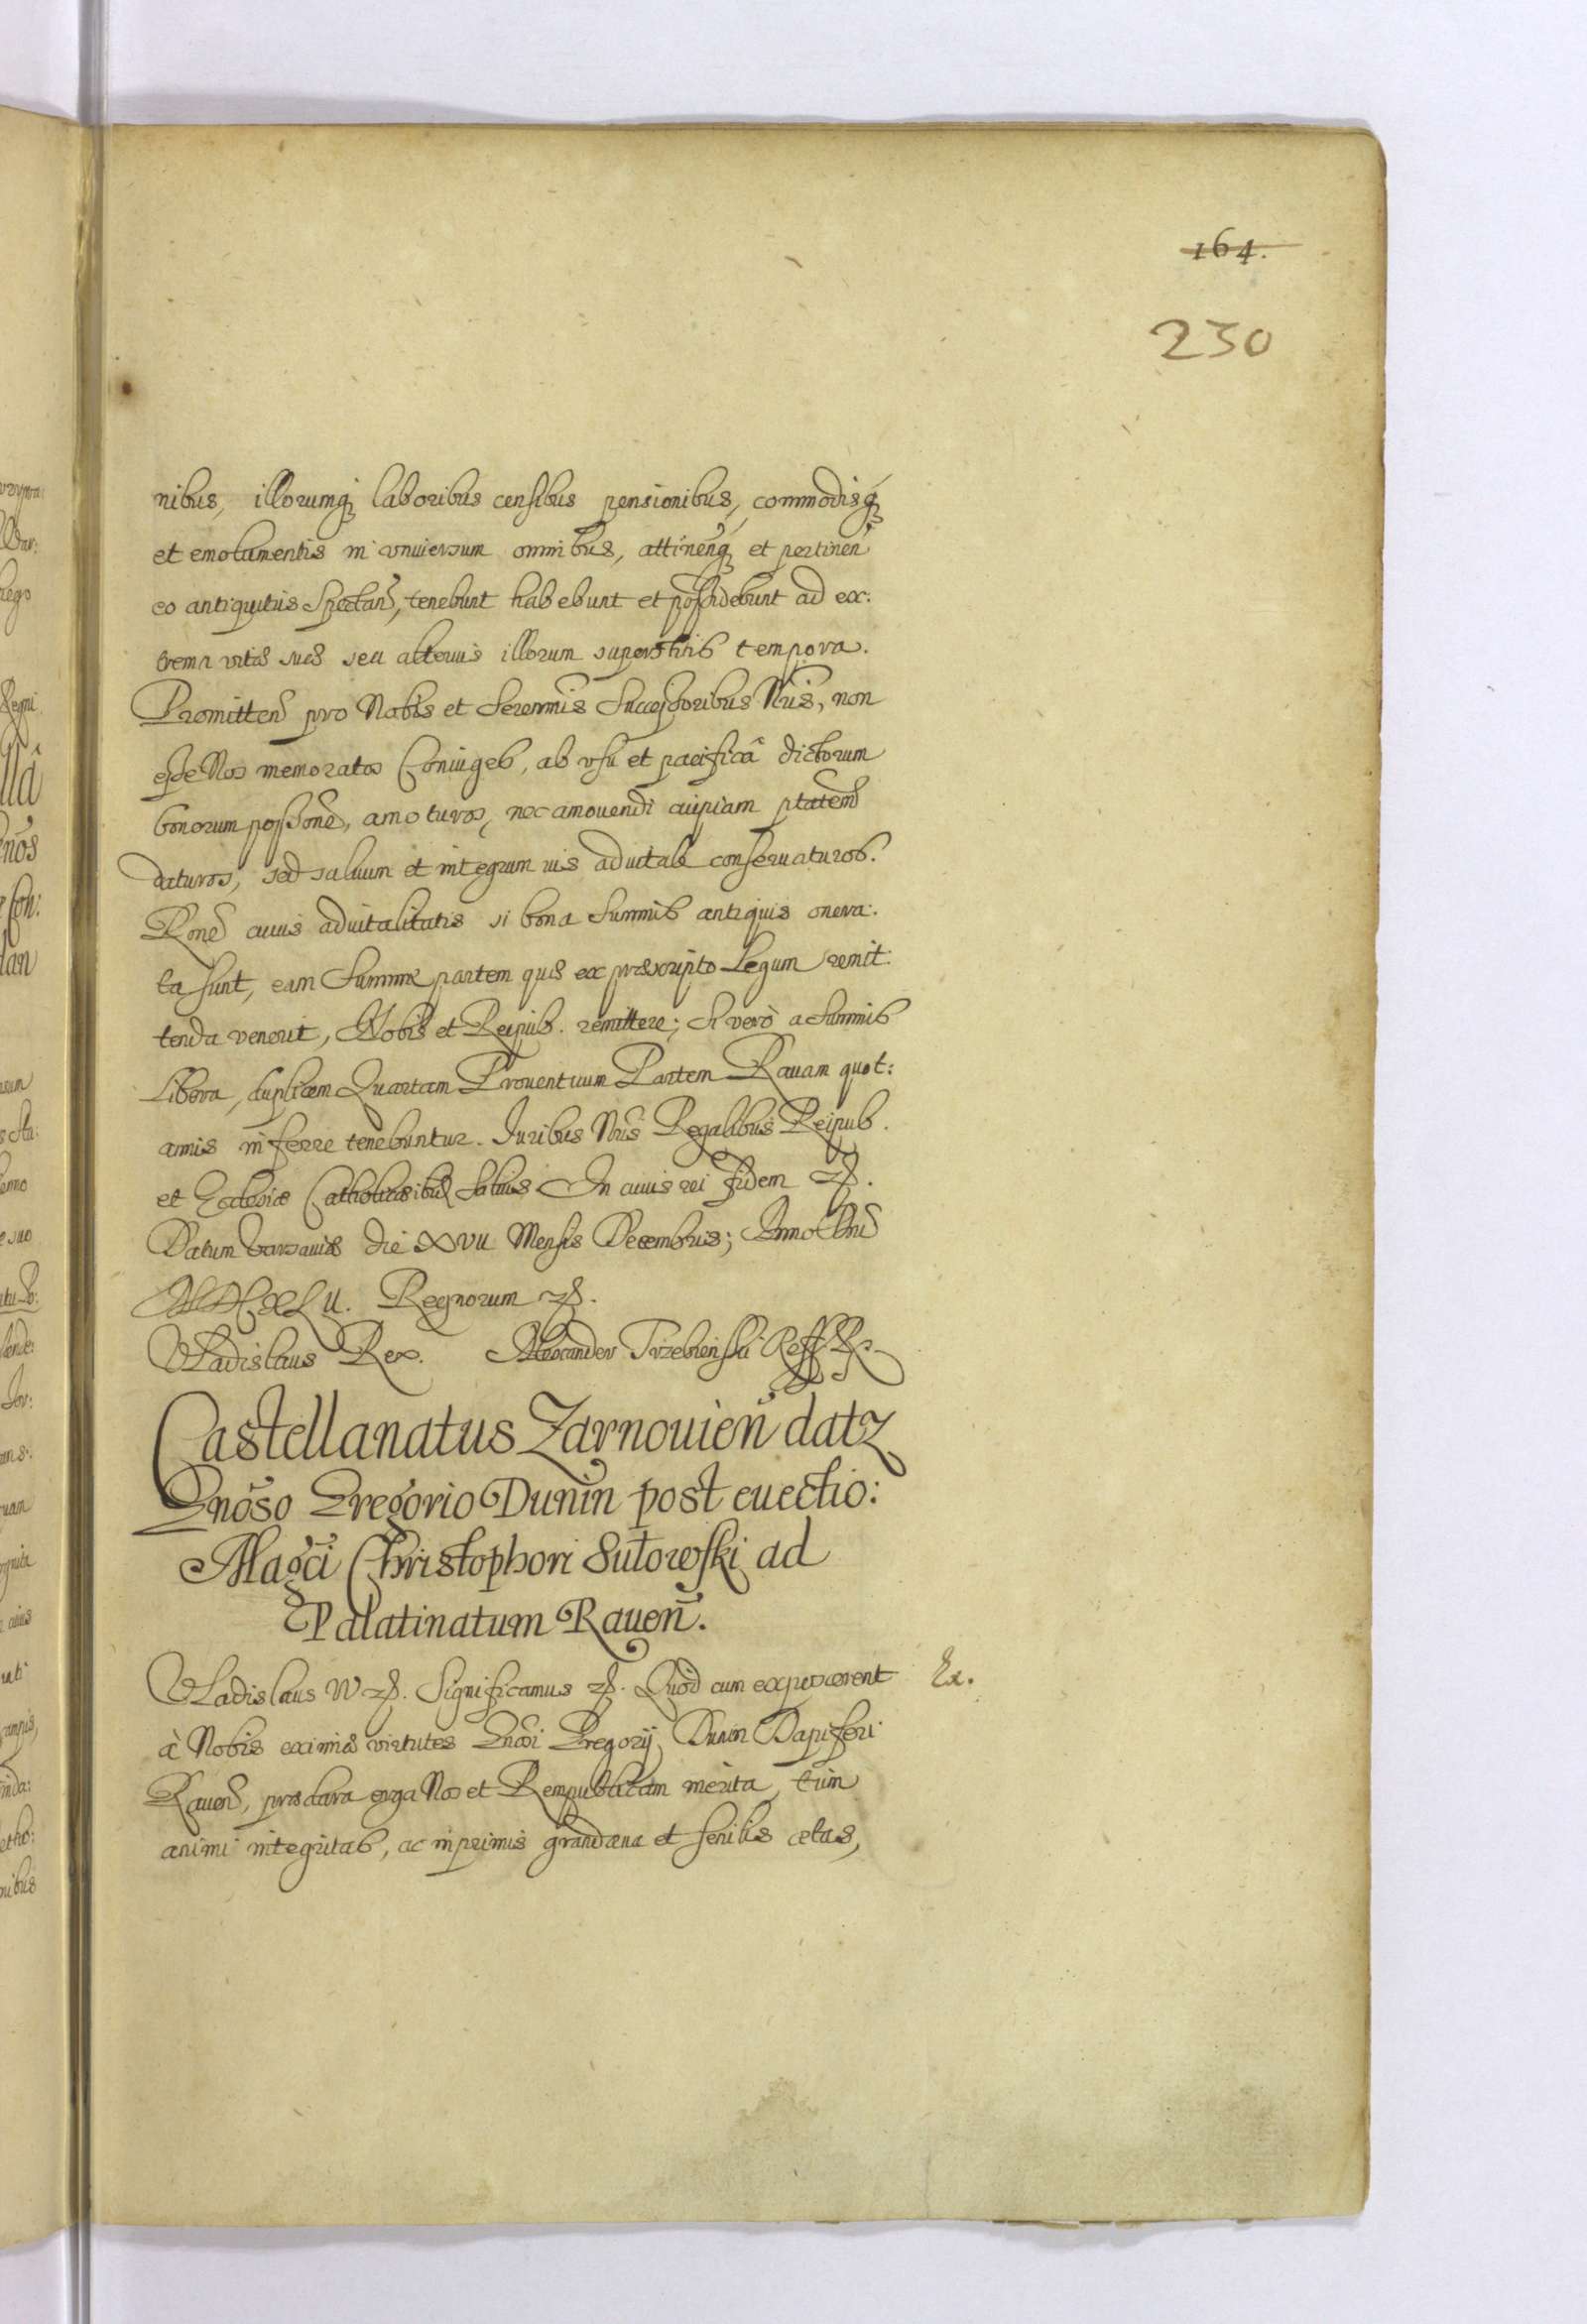 164.
230
nibus, illorumq3 laboribus censibus pensionibus, commodisq3
et emolumentis in vniuersum omnibus, attinenq3 et pertinen
eo antiquitus Spectan, tenebunt habebunt et possidebunt ad ex:
trema vitæ suæ seu alterius illorum superstitis tempora.
Promitten pro Nobis et Serenmis Successoribus Nris, non
esse Nos memoratos Coniuges, ab vsu et pacificâ dictorum
bonorum possione, amoturos, nec amouendi cuipiam ptatem
daturos, sed saluum et integrum ius aduitale conseruaturos.
Rone cuius aduitalitatis si bona Summis antiquis onera:
ta sunt, eam Summæ partem quæ ex præscripto Legum remit:
tenda venerit, Nobis et Reipub. remittere; Si verò a Summis
Libera, duplicem Quartam Prouentuum Partem Rauam quot:
annis inferre tenebuntur. Iuribus Nris Regalibus Reipub.
et Ecclesiæ Catholicæ saluis. In cuius rei fidem
Datum Varsauiæ die XVII Mensis Decembris; Anno Dni
MDCXLII. Regnorum
Vladislaus Rex. Alexander Trzebienski
Castellanatus Zarnouien datz
Gnoso Gregorio Dunin post euectio:
Magci Christophori Sułowski ad
Palatinatum Rauen.
Vladislaus IV Significamus Quod cum exposcerent Ex.
à Nobis eximiæ virtutes Gnosi Gregorij Dunin Dapiferi
Rauen, præclara erga Nos et Rempublicam merita, tum
animi integritas, ac inprimis grandæua et senilis ætas,